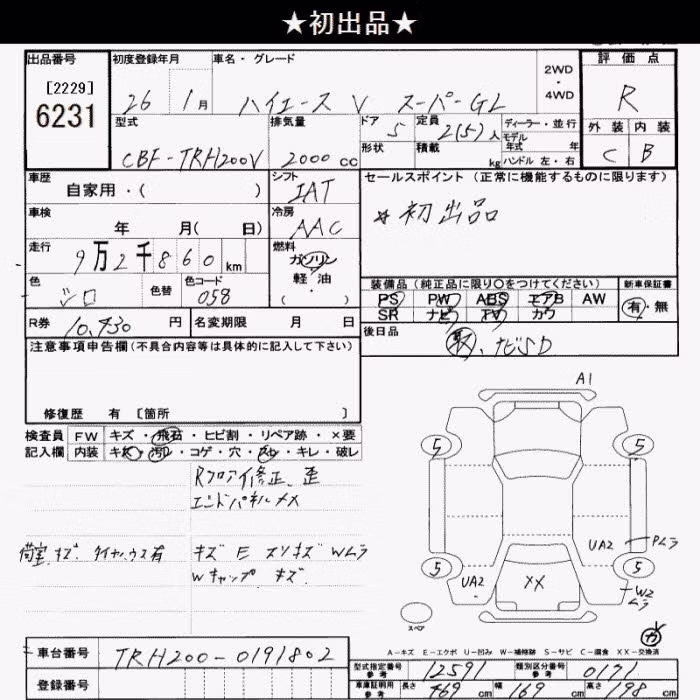 ★初出品★
出品番号 初度登録年月 車名・グレード 2WD ・ 4WD 評価点
[2229]
6231
26 1月 ハイエース V スーパーGL R
型式 排気量 ドア 5 定員 2(5)人 ディーラー・並行 外装 内装
形状 積載 kg モデル年式 年
CBF-TRH200V 2000cc ハンドル 左・右 C B
車歴 シフト セールスポイント(正常に機能するものに限ります)
自家用・( ) IAT
☆初出品
車検 冷房
年 月( 日) AAC
走行 燃料
9万2千860km ガソリン
軽・油
・( )
装備品(純正品に限り○をつけてください) 新車保証書
色 色替 色コード
シロ 058
PS PW ABS エアB AW 有・無
SR ナビ TV カワ
R券 10,930円 名変期限 月 日
後日品
取、ナビSD
注意事項申告欄(不具合内容等は具体的に記入して下さい)
修復歴 有 [箇所 ]
検査員 FW キズ・飛石・ヒビ割・リペア跡・×要
記入欄 内装 キズ・汚レ・コゲ・穴・スレ・キレ・破レ
Rフロア修正、歪
エンドパネルXX
荷室キズ タイヤハウス有 キズ E スリキズ Wムラ
Wキャップ キズ
A1
5 5
UA2 Pムラ
5 5
UA2 XX W2
ムラ
スペア
カ
A-キズ E-エクボ U-凹み W-補修跡 S-サビ C-腐食 XX-交換済
車台番号 TRH200-0191802
型式指定番号 参考 12591 類別区分番号 参考 0171
登録番号
車庫証明用 参考 長さ 469cm 幅 169cm 高さ 198cm